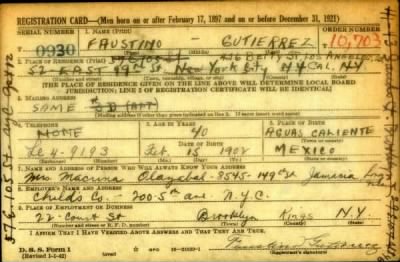 REGISTRATION CARD—(Men born on or after February 17, 1897 and on or before December 31, 1921)
SERIAL NUMBER 1. NAME (Print) ORDER NUMBER
U 0930 FAUSTINO - GUTIERREZ 10,703
(First) (Middle) (Last)
2. PLACE OF RESIDENCE (Print)
57 EAST New York City N.Y.
[THE PLACE OF RESIDENCE GIVEN ON THE LINE ABOVE WILL DETERMINE LOCAL BOARD
JURISDICTION; LINE 2 OF REGISTRATION CERTIFICATE WILL BE IDENTICAL]
3. MAILING ADDRESS
SAME
[Mailing address if other than place indicated on line 2. If same insert word same]
4. TELEPHONE 5. AGE IN YEARS 6. PLACE OF BIRTH
HOME 40 AGUAS CALIENTE
DATE OF BIRTH
Le 4-9193 Feb. 15 1902 MEXICO
7. NAME AND ADDRESS OF PERSON WHO WILL ALWAYS KNOW YOUR ADDRESS
Mrs. 8545-149th St Jamaica Long
8. EMPLOYER'S NAME AND ADDRESS
Childs Co. - 200-5th ave. N.Y.C.
9. PLACE OF EMPLOYMENT OR BUSINESS
22-Court St Brooklyn Kings N.Y.
(Number and street or R. F. D. number) (Town) (County) (State)
I AFFIRM THAT I HAVE VERIFIED ABOVE ANSWERS AND THAT THEY ARE TRUE.
D. S. S. Form 1
(Revised 1-1-42) (over)
Faustino Gutierrez